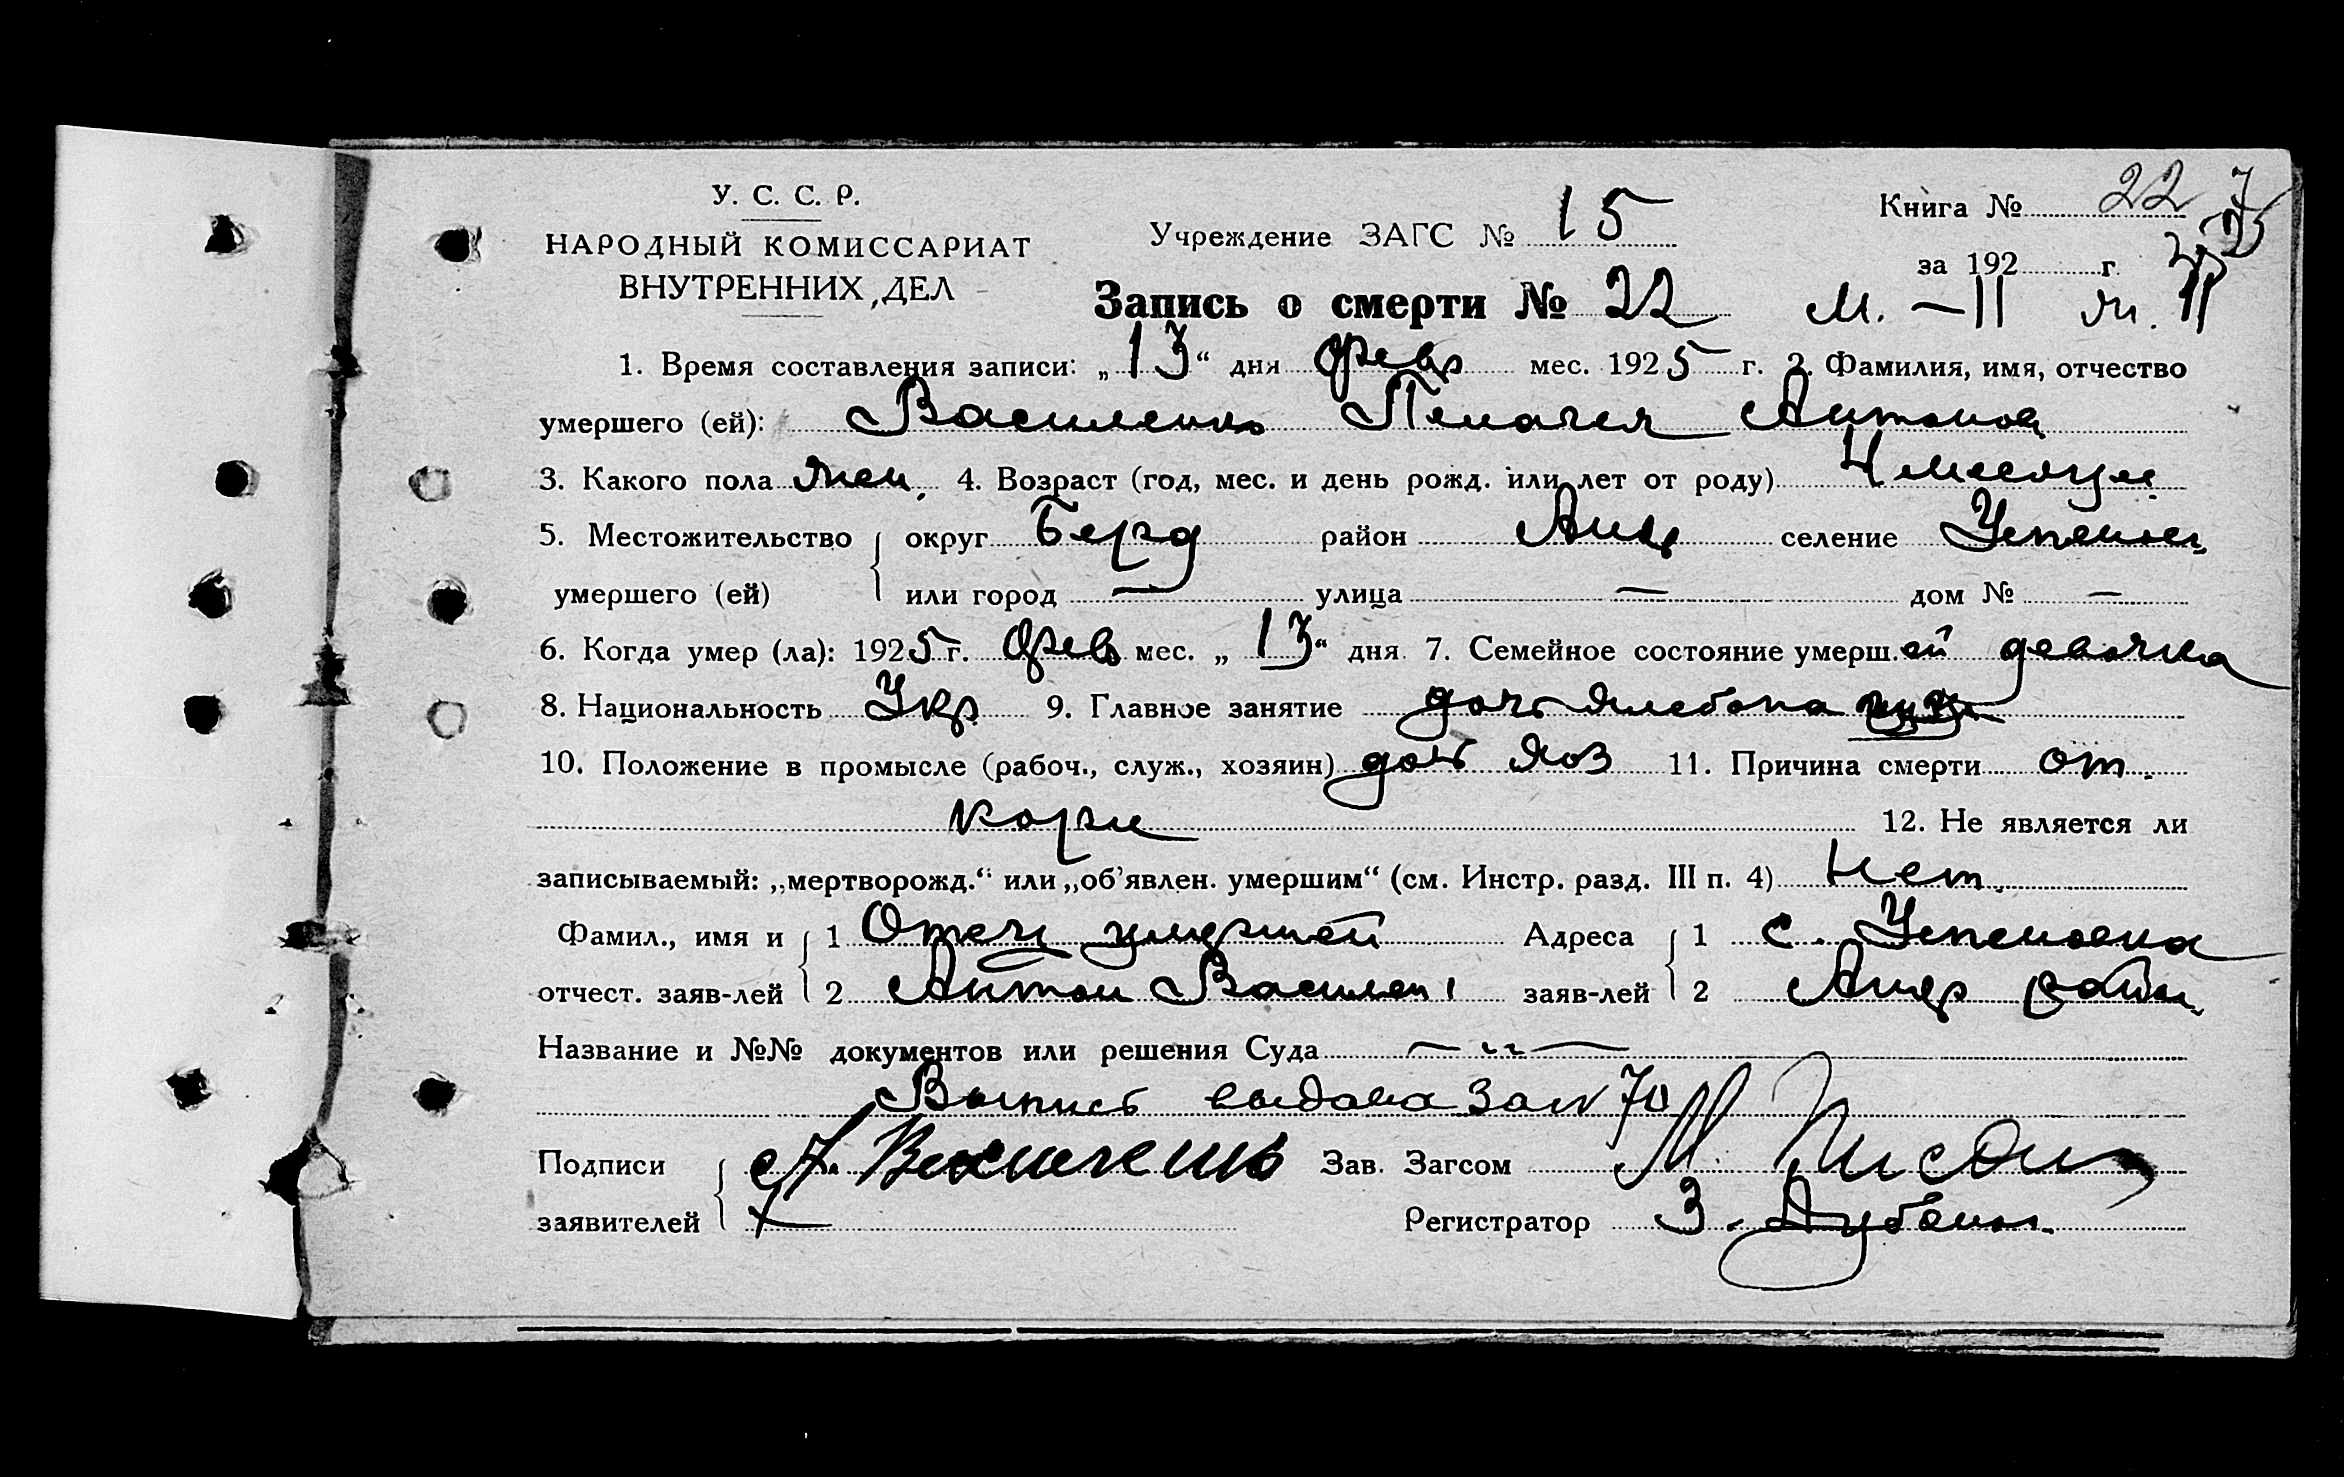 У. С. С. Р.
НАРОДНЫЙ КОМИССАРИАТ
ВНУТРЕННИХ ДЕЛ
Учреждение ЗАГС № 15
Книга № 22
за 192 г.
Запись о смерти № 22 М. – 11
1. Время составления записи: „13“ дня февр мес. 1925 г. 2. Фамилия, имя, отчество
умершего (ей): Василенко Пелагея Антонов
3. Какого пола жен. 4. Возраст (год, мес. и день рожд. или лет от роду) 4 месяцев
5. Местожительство округ Берд район Анд селение Успенов
умершего (ей) или город — улица — дом № —
6. Когда умер (ла): 1925 г. фев мес. „13“ дня 7. Семейное состояние умерш.ей девочка
8. Национальность Укр 9. Главное занятие дочь хлебопа
10. Положение в промысле (рабоч., служ., хозяин) дочь хоз 11. Причина смерти от
кори 12. Не является ли
записываемый: „мертворожд.“ или „об’явлен. умершим“ (см. Инстр. разд. III п. 4) Нет.
Фамил., имя и 1 Отец умершей Адреса 1 с. Успеновка
отчест. заяв-лей 2 Антон Василен заяв-лей 2 район
Название и №№ документов или решения Суда — „ —
Выпись выдана за № 70
Подписи А Василенко Зав. Загсом М.
заявителей Регистратор З.